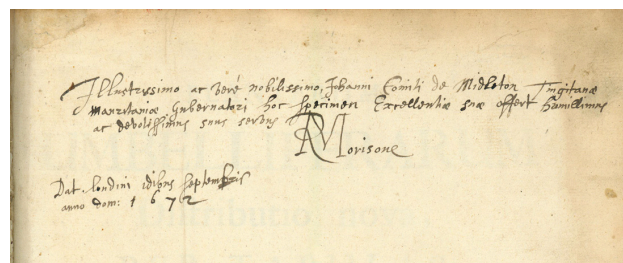 Illustrissimo ac verè nobilissimo, Johanni Comiti de Midleton Tingitanæ
Mauritaniæ Gubernatori hoc specimen Excellentiæ suæ offert humillimus
ac devotissimus suus servus
RMorisone
Dat. Londini idibus Septembris
anno dom: 1672